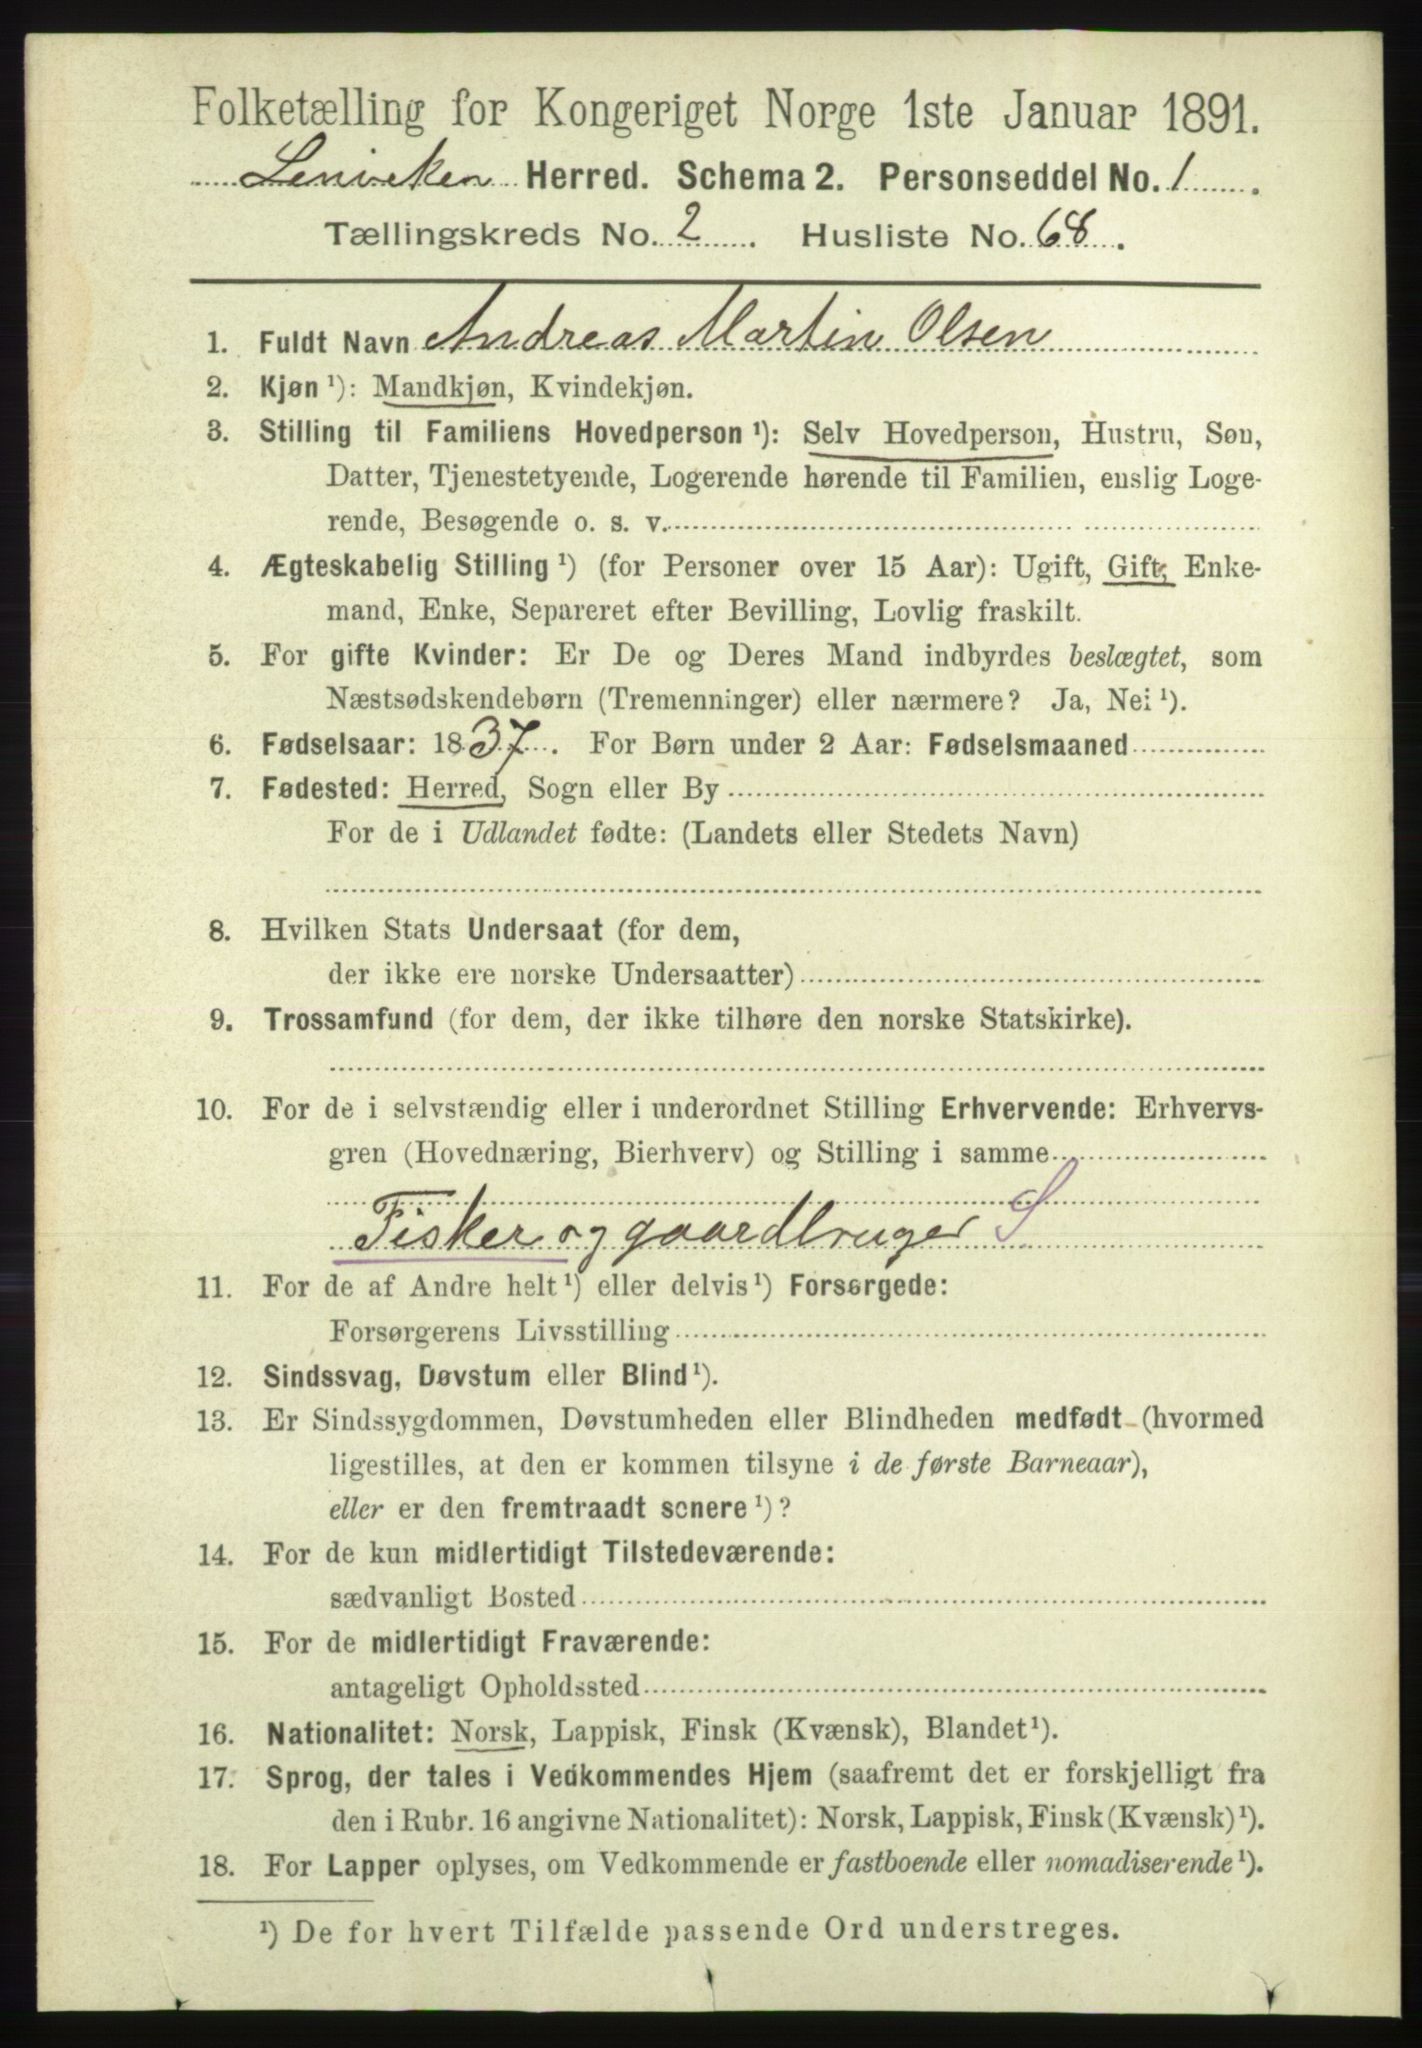 Folketælling for Kongeriget Norge 1ste Januar 1891.
Lenviken Herred. Schema 2. Personseddel No. 1.
Tællingskreds No. 2. Husliste No. 68.
1. Fuldt Navn Andreas Martin Olsen
2. Kjøn ¹): Mandkjøn, Kvindekjøn.
3. Stilling til Familiens Hovedperson ¹): Selv Hovedperson, Hustru, Søn,
Datter, Tjenestetyende, Logerende hørende til Familien, enslig Loge-
rende, Besøgende o. s. v.
4. Ægteskabelig Stilling ¹) (for Personer over 15 Aar): Ugift, Gift, Enke-
mand, Enke, Separeret efter Bevilling, Lovlig fraskilt.
5. For gifte Kvinder: Er De og Deres Mand indbyrdes beslægtet, som
Næstsødskendebørn (Tremenninger) eller nærmere? Ja, Nei ¹).
6. Fødselsaar: 1837. For Børn under 2 Aar: Fødselsmaaned
7. Fødested: Herred, Sogn eller By
For de i Udlandet fødte: (Landets eller Stedets Navn)
8. Hvilken Stats Undersaat (for dem,
der ikke ere norske Undersaatter)
9. Trossamfund (for dem, der ikke tilhøre den norske Statskirke).
10. For de i selvstændig eller i underordnet Stilling Erhvervende: Erhvervs-
gren (Hovednæring, Bierhverv) og Stilling i samme
Fisker og gaardbruger S
11. For de af Andre helt ¹) eller delvis ¹) Forsørgede:
Forsørgerens Livsstilling
12. Sindssvag, Døvstum eller Blind ¹).
13. Er Sindssygdommen, Døvstumheden eller Blindheden medfødt (hvormed
ligestilles, at den er kommen tilsyne i de første Barneaar),
eller er den fremtraadt senere ¹)?
14. For de kun midlertidigt Tilstedeværende:
sædvanligt Bosted
15. For de midlertidigt Fraværende:
antageligt Opholdssted
16. Nationalitet: Norsk, Lappisk, Finsk (Kvænsk), Blandet ¹).
17. Sprog, der tales i Vedkommendes Hjem (saafremt det er forskjelligt fra
den i Rubr. 16 angivne Nationalitet): Norsk, Lappisk, Finsk (Kvænsk) ¹).
18. For Lapper oplyses, om Vedkommende er fastboende eller nomadiserende ¹).
¹) De for hvert Tilfælde passende Ord understreges.